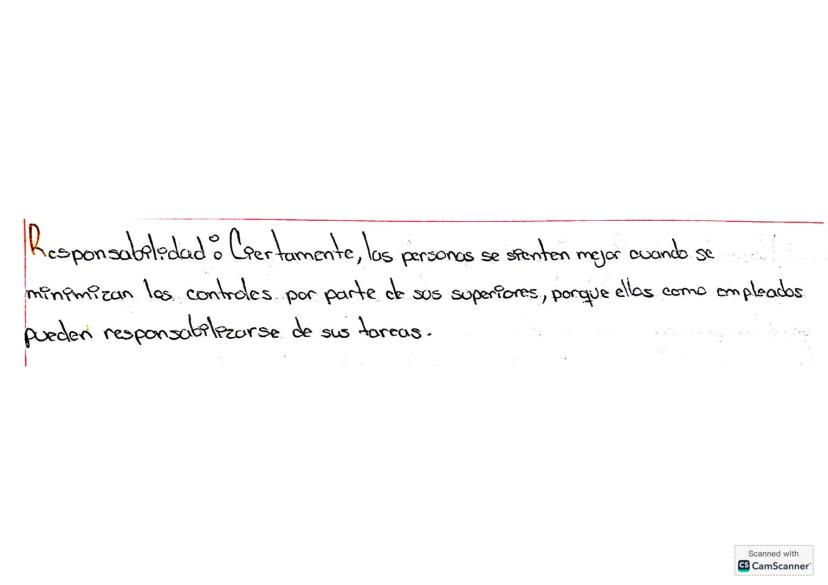 Responsabilidad: Ciertamente, las personas se sienten mejor cuando se
minimizan los controles por parte de sus superiores, porque ellos como empleados
pueden responsabilizarse de sus tareas.
Scanned with
CS CamScanner